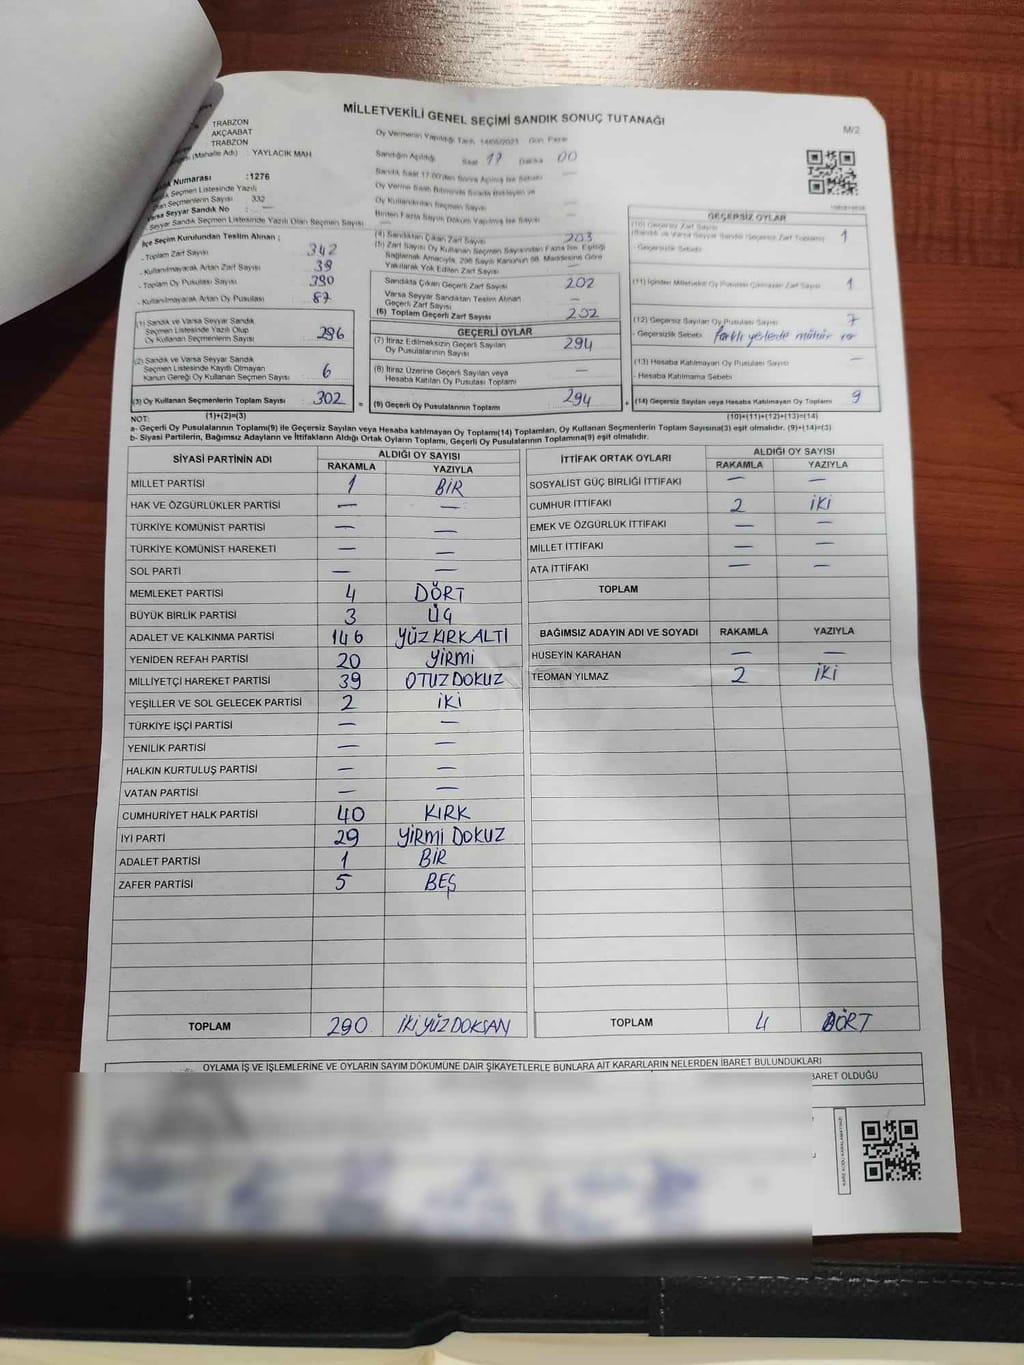 MİLLETVEKİLİ GENEL SEÇİMİ SANDIK SONUÇ TUTANAĞI
M/2
TRABZON
AKÇAABAT
TRABZON
(Mahalle Adı) : YAYLACIK MAH
Numarası :1276
Seçmen Listesinde Yazılı
Olan Seçmen Sayısı 332
Varsa Seyyar Sandık No
Seyyar Sandık Seçmen Listesinde Yazılı Olan Seçmen Sayısı —
İlçe Seçim Kurulundan Teslim Alınan ;
- Toplam Zarf Sayısı 342
- Kullanılmayarak Artan Zarf Sayısı 39
- Toplam Oy Pusulası Sayısı
- Kullanılmayarak Artan Oy Pusulası 87
(1) Sandık ve Varsa Seyyar Sandık
Seçmen Listesinde Yazılı Olup
Oy Kullanan Seçmenlerin Sayısı 296
(2) Sandık ve Varsa Seyyar Sandık
Seçmen Listesinde Kayıtlı Olmayan
Kanun Gereği Oy Kullanan Seçmen Sayısı 6
(3) Oy Kullanan Seçmenlerin Toplam Sayısı 302
Oy Vermenin Yapıldığı Tarih 14/05/2023 Gün Pazar
Sandığın Açıldığı Saat 17 Dakika 00
Sandık 17:00'den Sonra Açılmış İse Sebebi —
Oy Verme Saati Bitiminde Sırada Bekleyen ve
Oy Kullandırılan Seçmen Sayısı —
Birden Fazla Sayım Döküm Yapılmış İse Sayısı —
(4) Sandıktan Çıkan Zarf Sayısı
(5) Zarf Sayısı Oy Kullanan Seçmen Sayısından Fazla İse, Eşitliği
Sağlamak Amacıyla, 298 Sayılı Kanunun 98. Maddesine Göre
Yakılarak Yok Edilen Zarf Sayısı —
Sandıkta Çıkan Geçerli Zarf Sayısı
Varsa Seyyar Sandıktan Teslim Alınan
Geçerli Zarf Sayısı —
(6) Toplam Geçerli Zarf Sayısı
GEÇERLİ OYLAR
(7) İtiraz Edilmeksizin Geçerli Sayılan
Oy Pusulalarının Sayısı 294
(8) İtiraz Üzerine Geçerli Sayılan veya
Hesaba Katılan Oy Pusulası Toplamı —
= (9) Geçerli Oy Pusulalarının Toplamı 294
GEÇERSİZ OYLAR
(10) Geçersiz Zarf Sayısı
(Sandık ve Varsa Seyyar Sandık Geçersiz Zarf Toplamı) 1
- Geçersizlik Sebebi
(11) İçinden Milletvekili Oy Pusulası Çıkmayan Zarf Sayısı 1
(12) Geçersiz Sayılan Oy Pusulası Sayısı 7
- Geçersizlik Sebebi farklı yerlerde mühür var
(13) Hesaba Katılmayan Oy Pusulası Sayısı —
- Hesaba Katılmama Sebebi
+ (14) Geçersiz Sayılan veya Hesaba Katılmayan Oy Toplamı 9
NOT: (1)+(2)=(3) (10)+(11)+(12)+(13)=(14)
a- Geçerli Oy Pusulalarının Toplamı(9) ile Geçersiz Sayılan veya Hesaba Katılmayan Oy Toplamı(14) Toplamları, Oy Kullanan Seçmenlerin Toplam Sayısına(3) eşit olmalıdır. (9)+(14)=(3)
b- Siyasi Partilerin, Bağımsız Adayların ve İttifakların Aldığı Ortak Oyların Toplamı, Geçerli Oy Pusulalarının Toplamına(9) eşit olmalıdır.
SİYASİ PARTİNİN ADI ALDIĞI OY SAYISI
RAKAMLA YAZIYLA
MİLLET PARTİSİ 1 BİR
HAK VE ÖZGÜRLÜKLER PARTİSİ — —
TÜRKİYE KOMÜNİST PARTİSİ — —
TÜRKİYE KOMÜNİST HAREKETİ — —
SOL PARTİ — —
MEMLEKET PARTİSİ 4 DÖRT
BÜYÜK BİRLİK PARTİSİ 3 ÜÇ
ADALET VE KALKINMA PARTİSİ 146 YÜZ KIRK ALTI
YENİDEN REFAH PARTİSİ 20 YİRMİ
MİLLİYETÇİ HAREKET PARTİSİ 39 OTUZ DOKUZ
YEŞİLLER VE SOL GELECEK PARTİSİ 2 İKİ
TÜRKİYE İŞÇİ PARTİSİ — —
YENİLİK PARTİSİ — —
HALKIN KURTULUŞ PARTİSİ — —
VATAN PARTİSİ — —
CUMHURİYET HALK PARTİSİ 40 KIRK
İYİ PARTİ 29 YİRMİ DOKUZ
ADALET PARTİSİ 1 BİR
ZAFER PARTİSİ 5 BEŞ
TOPLAM 290 İKİ YÜZ DOKSAN
İTTİFAK ORTAK OYLARI ALDIĞI OY SAYISI
RAKAMLA YAZIYLA
SOSYALİST GÜÇ BİRLİĞİ İTTİFAKI — —
CUMHUR İTTİFAKI 2 İKİ
EMEK VE ÖZGÜRLÜK İTTİFAKI — —
MİLLET İTTİFAKI — —
ATA İTTİFAKI — —
TOPLAM
BAĞIMSIZ ADAYIN ADI VE SOYADI RAKAMLA YAZIYLA
HÜSEYİN KARAHAN — —
TEOMAN YILMAZ 2 İKİ
TOPLAM 4 DÖRT
OYLAMA İŞ VE İŞLEMLERİNE VE OYLARIN SAYIM DÖKÜMÜNE DAİR ŞİKAYETLERLE BUNLARA AİT KARARLARIN NELERDEN İBARET BULUNDUKLARI
İBARET OLDUĞU